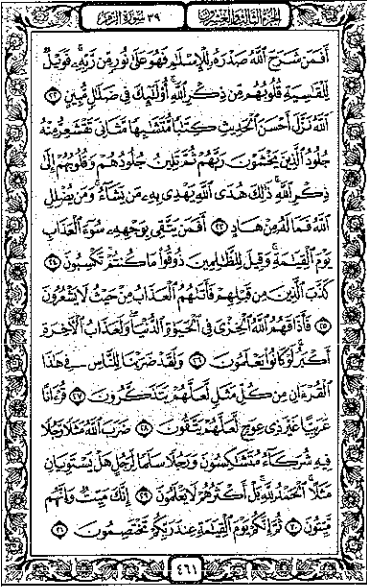 الجزء الثالث والعشرون
٣٩ سورة الزمر
أَفَمَن شَرَحَ ٱللَّهُ صَدْرَهُۥ لِلْإِسْلَٰمِ فَهُوَ عَلَىٰ نُورٍ مِّن رَّبِّهِۦ ۚ فَوَيْلٌ
لِّلْقَٰسِيَةِ قُلُوبُهُم مِّن ذِكْرِ ٱللَّهِ ۚ أُو۟لَٰٓئِكَ فِى ضَلَٰلٍ مُّبِينٍ ٢٢
ٱللَّهُ نَزَّلَ أَحْسَنَ ٱلْحَدِيثِ كِتَٰبًا مُّتَشَٰبِهًا مَّثَانِىَ تَقْشَعِرُّ مِنْهُ
جُلُودُ ٱلَّذِينَ يَخْشَوْنَ رَبَّهُمْ ثُمَّ تَلِينُ جُلُودُهُمْ وَقُلُوبُهُمْ إِلَىٰ
ذِكْرِ ٱللَّهِ ۚ ذَٰلِكَ هُدَى ٱللَّهِ يَهْدِى بِهِۦ مَن يَشَآءُ ۚ وَمَن يُضْلِلِ
ٱللَّهُ فَمَا لَهُۥ مِنْ هَادٍ ٢٣ أَفَمَن يَتَّقِى بِوَجْهِهِۦ سُوٓءَ ٱلْعَذَابِ
يَوْمَ ٱلْقِيَٰمَةِ ۚ وَقِيلَ لِلظَّٰلِمِينَ ذُوقُوا۟ مَا كُنتُمْ تَكْسِبُونَ ٢٤
كَذَّبَ ٱلَّذِينَ مِن قَبْلِهِمْ فَأَتَىٰهُمُ ٱلْعَذَابُ مِنْ حَيْثُ لَا يَشْعُرُونَ
٢٥ فَأَذَاقَهُمُ ٱللَّهُ ٱلْخِزْىَ فِى ٱلْحَيَوٰةِ ٱلدُّنْيَا ۖ وَلَعَذَابُ ٱلْءَاخِرَةِ
أَكْبَرُ ۚ لَوْ كَانُوا۟ يَعْلَمُونَ ٢٦ وَلَقَدْ ضَرَبْنَا لِلنَّاسِ فِى هَٰذَا
ٱلْقُرْءَانِ مِن كُلِّ مَثَلٍ لَّعَلَّهُمْ يَتَذَكَّرُونَ ٢٧ قُرْءَانًا
عَرَبِيًّا غَيْرَ ذِى عِوَجٍ لَّعَلَّهُمْ يَتَّقُونَ ٢٨ ضَرَبَ ٱللَّهُ مَثَلًا رَّجُلًا
فِيهِ شُرَكَآءُ مُتَشَٰكِسُونَ وَرَجُلًا سَلَمًا لِّرَجُلٍ هَلْ يَسْتَوِيَانِ
مَثَلًا ۚ ٱلْحَمْدُ لِلَّهِ ۚ بَلْ أَكْثَرُهُمْ لَا يَعْلَمُونَ ٢٩ إِنَّكَ مَيِّتٌ وَإِنَّهُم
مَّيِّتُونَ ٣٠ ثُمَّ إِنَّكُمْ يَوْمَ ٱلْقِيَٰمَةِ عِندَ رَبِّكُمْ تَخْتَصِمُونَ ٣١
٤٦١